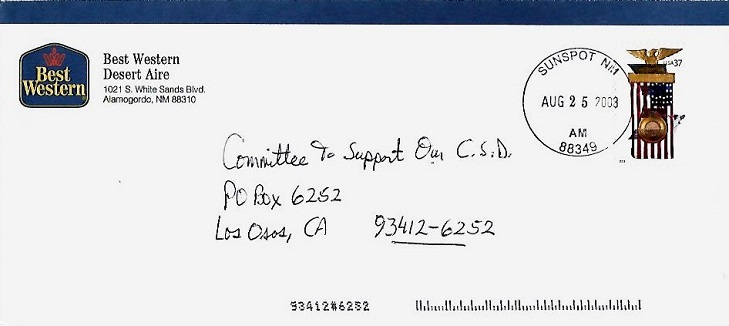 Best Western
Best Western
Desert Aire
1021 S. White Sands Blvd.
Alamogordo, NM 88310
SUNSPOT NM
AUG 25 2003
AM
88349
USA37
Committee To Support Our C.S.D.
PO Box 6252
Los Osos, CA 93412-6252
93412#6252